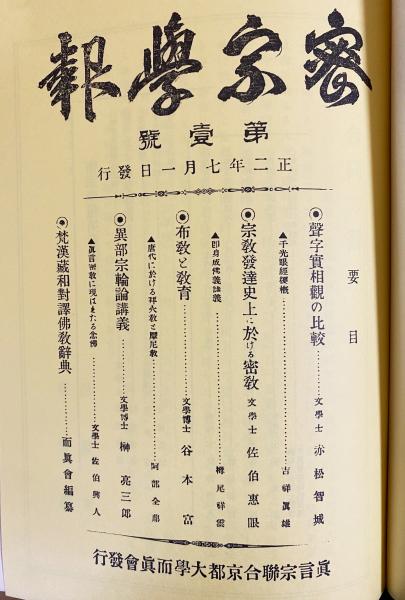 密宗學報
第壹號
正二年七月一日發行
要目
◉聲字實相觀の比較………文學士 赤松智城
▲千光眼經梗概………吉祥眞雄
◉宗教發達史上に於ける密教 文學士 佐伯惠眼
▲即身成佛義講義………栂尾祥雲
◉布教と教育………文學博士 谷本富
▲唐代に於ける祆火教と摩尼教………阿部全鼎
◉異部宗輪論講義………文學博士 榊亮三郎
▲眞言密教に現はまたる念佛………文學士 佐伯興人
◉梵漢藏和對譯佛教辭典………而眞會編纂
眞言宗聯合京都大學而眞會發行